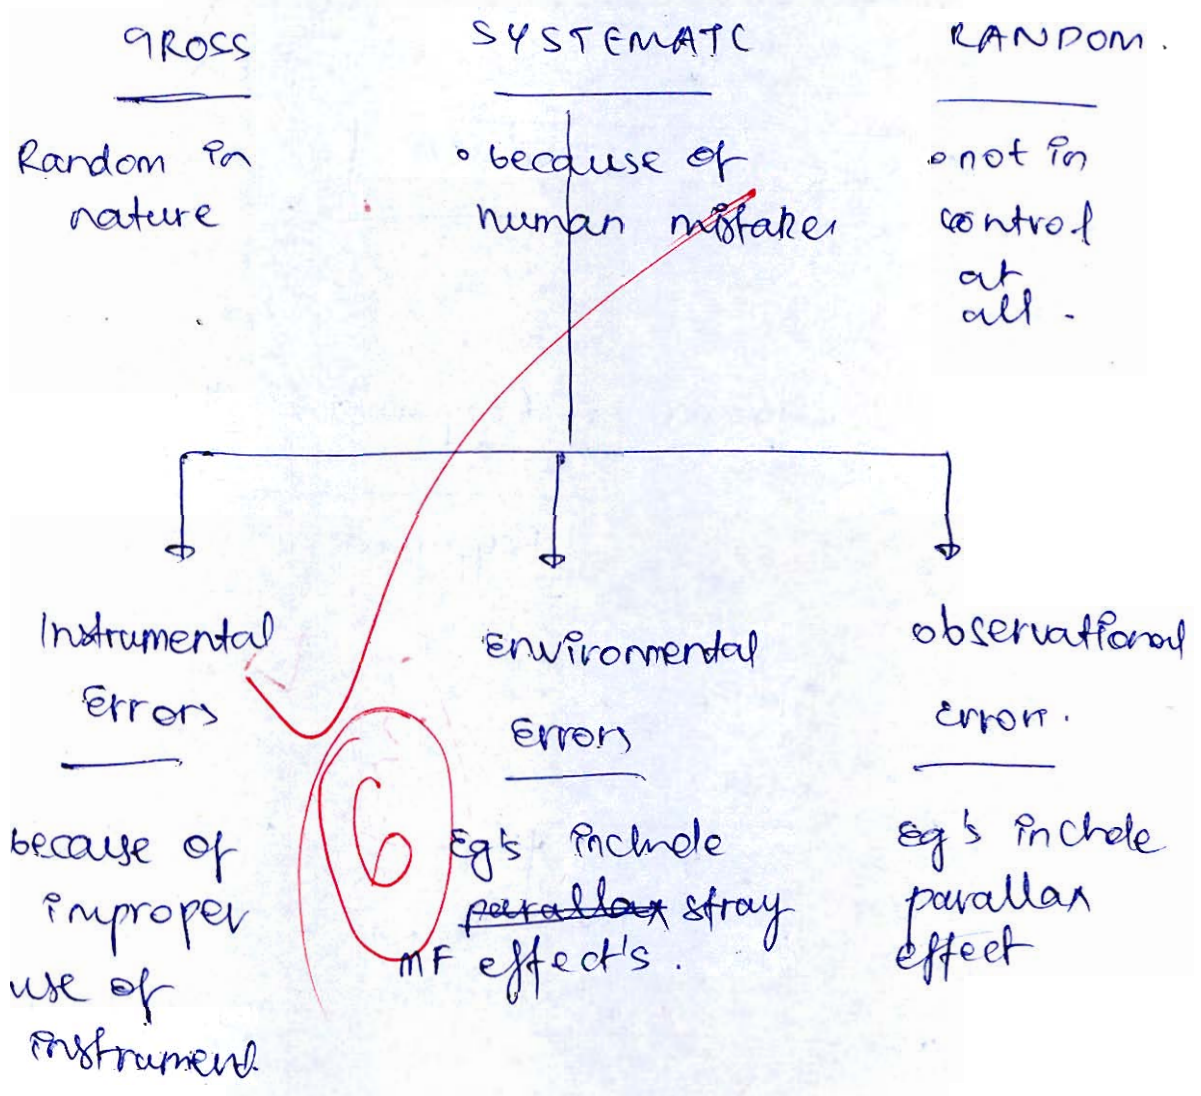 GROSS
SYSTEMATC
RANDOM.
Random in
nature
• because of
human mistakes
• not in
control
at
all.
Instrumental
Errors
because of
improper
use of
instrument.
Environmental
Errors
Eg's include
parallax stray
MF effect's.
observational
error.
Eg's include
parallax
effect
6